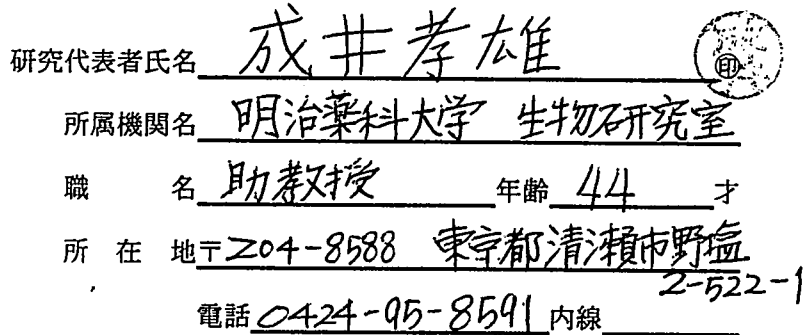 研究代表者氏名 成井孝雄 印
所属機関名 明治薬科大学 生物研究室
職 名 助教授 年齢 44 才
所 在 地 〒204-8588 東京都清瀬市野塩
2-522-1
電話 0424-95-8591 内線